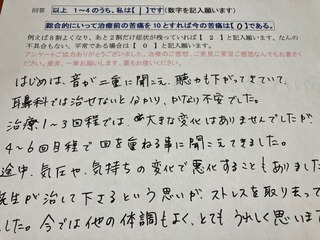 回答 以上 1～4のうち、私は【 1 】です (数字を記入願います)
総合的にいって治療前の苦痛を 10 とすれば今の苦痛は【 0 】である。
例えば8割よくなり、あと2割だけ症状が残っていれば 【 2 】 と記入願います。なんの
不具合もない、平常である場合は 【 0 】 と記入願います。
アンケートご協力ありがとうございました。治療のご感想、ご意見ご要望ご感想なんでもお書き
ください。是非、一筆お願いします。裏もお使いください。
はじめは、音が二重に聞こえ、聴力も下がってきていて、
耳鼻科では治せないと分かり、かなり不安でした。
治療1～3回程では、大きな変化はありませんでしたが、
4～6回目程で回を重ねる事に聞こえてきました。
途中、気圧や、気持ちの変化で悪化することもありました
先生が治して下さるという思いが、ストレスを取りまって
した。今では他の体調もよく、とても うれしく思います